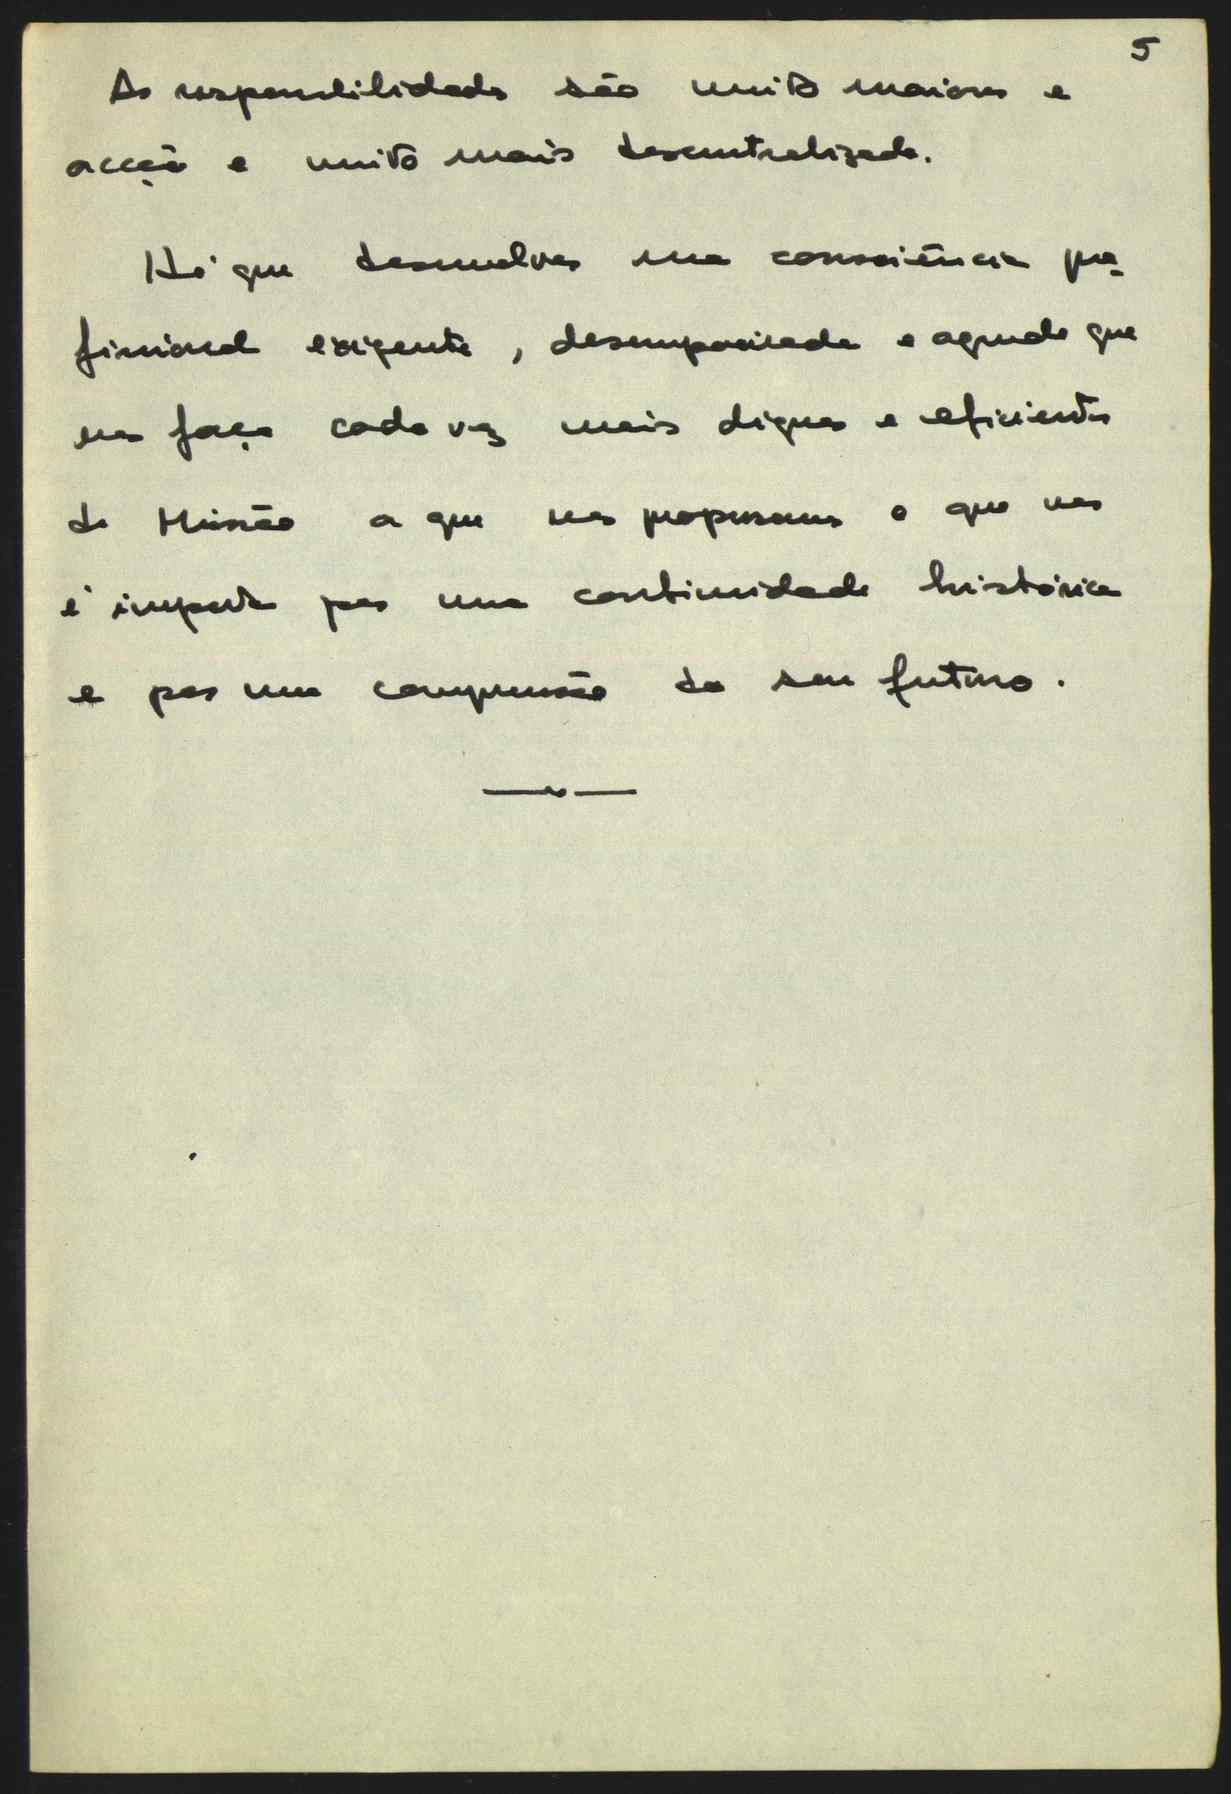 5
As responsabilidades são muito maiores e
acção é muito mais descentralizada.
Há que desenvolver uma consciência pro-
fissional exigente, e aguda que
nos faça cada vez mais dignos e eficientes
da Missão a que nos propusemos e que nos
é imposta por uma continuidade histórica
e por uma compreensão do seu futuro.